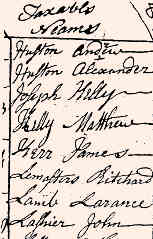 Taxables
Neams
Huston Andrew
Huston Alexander
Joseph Helly
Kelly Matthew
Kerr James
Lemasters Ritchard
Lamb Larance
Lashier John